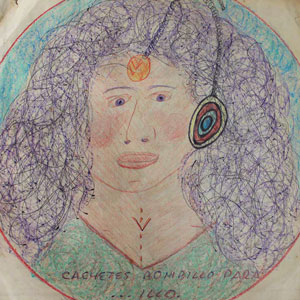 CACHETES BOMBILLO PARA
... 1000.